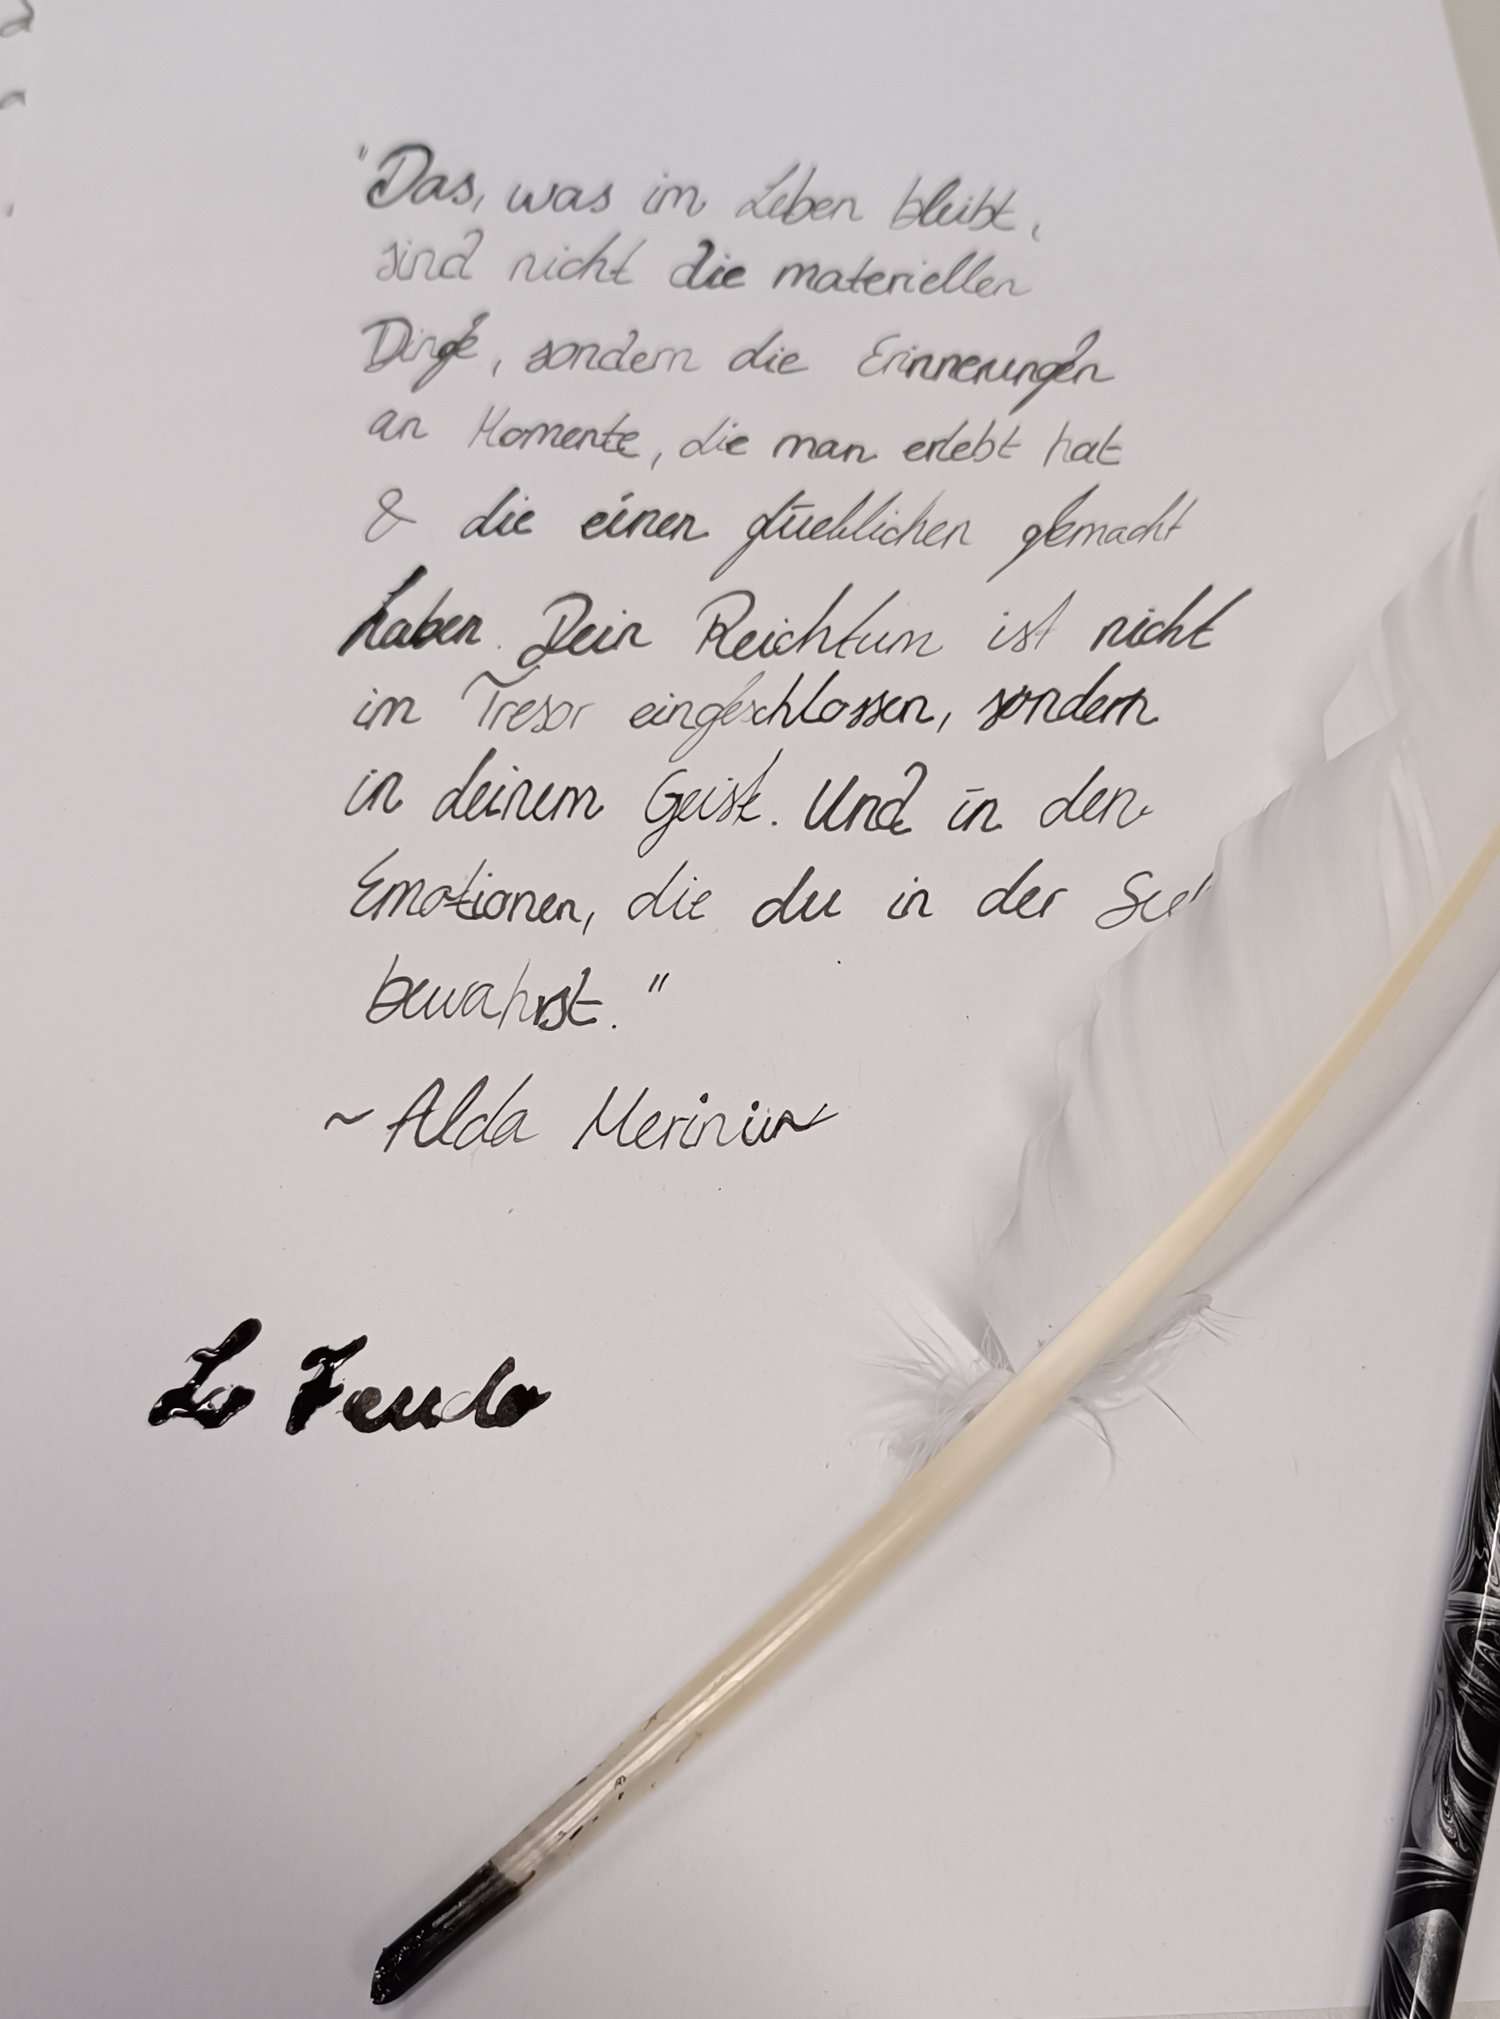 "Das, was im Leben bleibt,
sind nicht die materiellen
Dinge, sondern die Erinnerungen
an Momente, die man erlebt hat
& die einen glücklichen gemacht
haben. Dein Reichtum ist nicht
im Tresor eingeschlossen, sondern
in deinem Geist. Und in den
Emotionen, die du in der
bewahrst."
~ Alda Merini